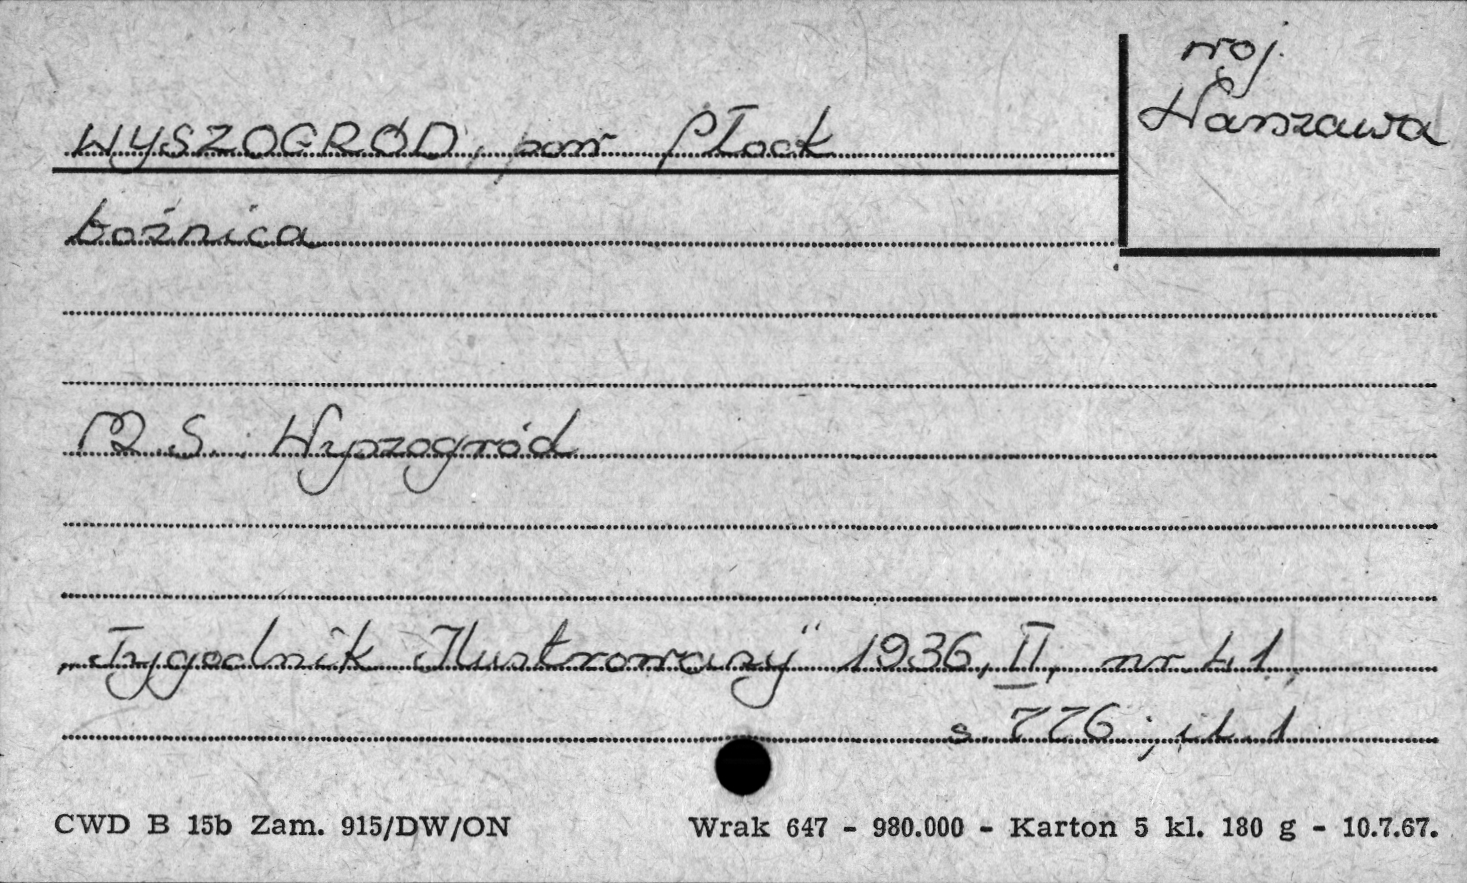 woj.
Warszawa
WYSZOGRÓD, pow Płock
bożnica
R.S. : Wyszogród
„Tygodnik Ilustrowany" 1936, II, nr 41,
s. 776 ; il. 1
CWD B 15b Zam. 915/DW/ON Wrak 647 - 980.000 - Karton 5 kl. 180 g - 10.7.67.